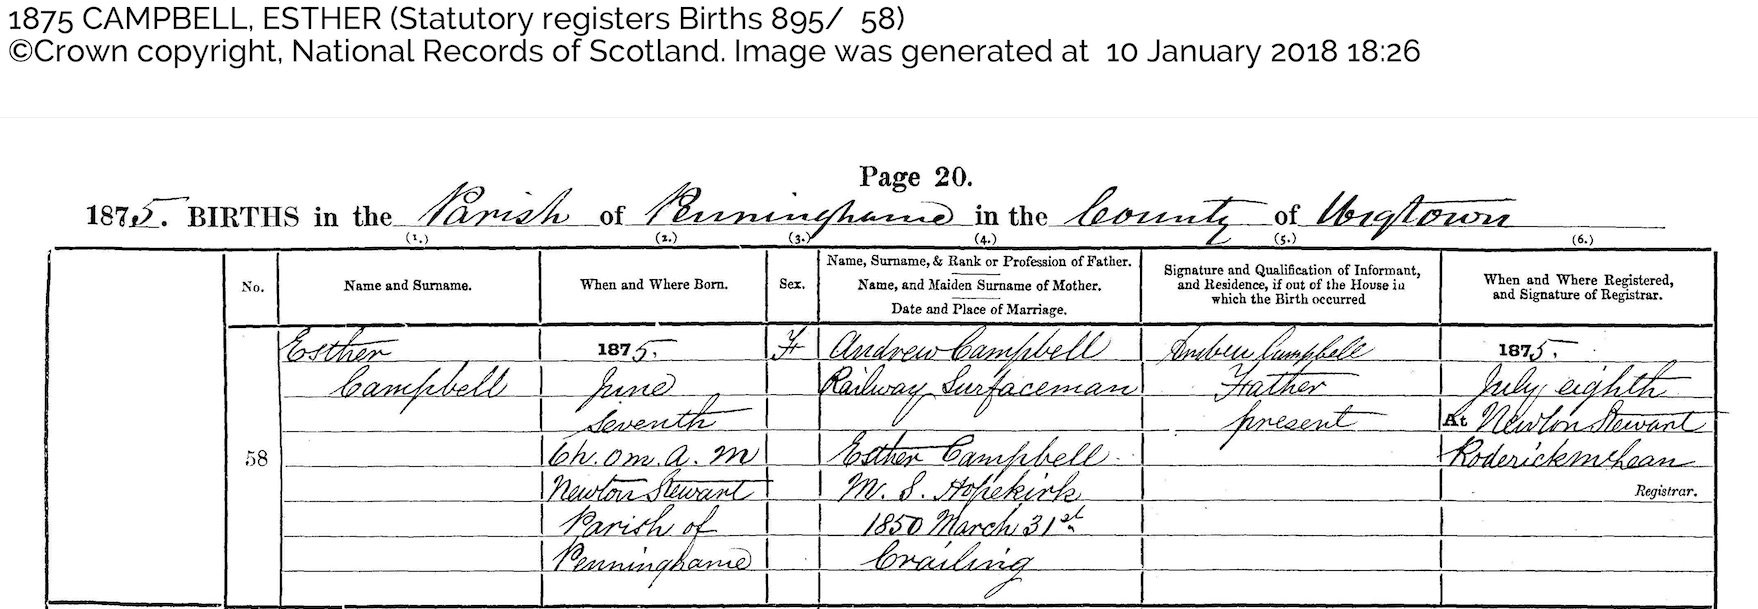 1875 CAMPBELL, ESTHER (Statutory registers Births 895/ 58)
©Crown copyright, National Records of Scotland. Image was generated at 10 January 2018 18:26
Page 20.
1875. BIRTHS in the Parish of Penninghame in the County of Wigtown
(1.) (2.) (3.) (4.) (5.) (6.)
No.
Name and Surname.
When and Where Born.
Sex.
Name, Surname, & Rank or Profession of Father.
Name, and Maiden Surname of Mother.
Date and Place of Marriage.
Signature and Qualification of Informant,
and Residence, if out of the House in
which the Birth occurred
When and Where Registered,
and Signature of Registrar.
58
Esther
Campbell
1875.
June
Seventh
6h. 0m. A. M
Newton Stewart
Parish of
Penninghame
F
Andrew Campbell
Railway Surfaceman
Esther Campbell
M. S. Hopekirk
1850 March 31st
Crailing
Campbell
Father
present
1875.
July eighth
At Newton Stewart
Roderick McLean
Registrar.